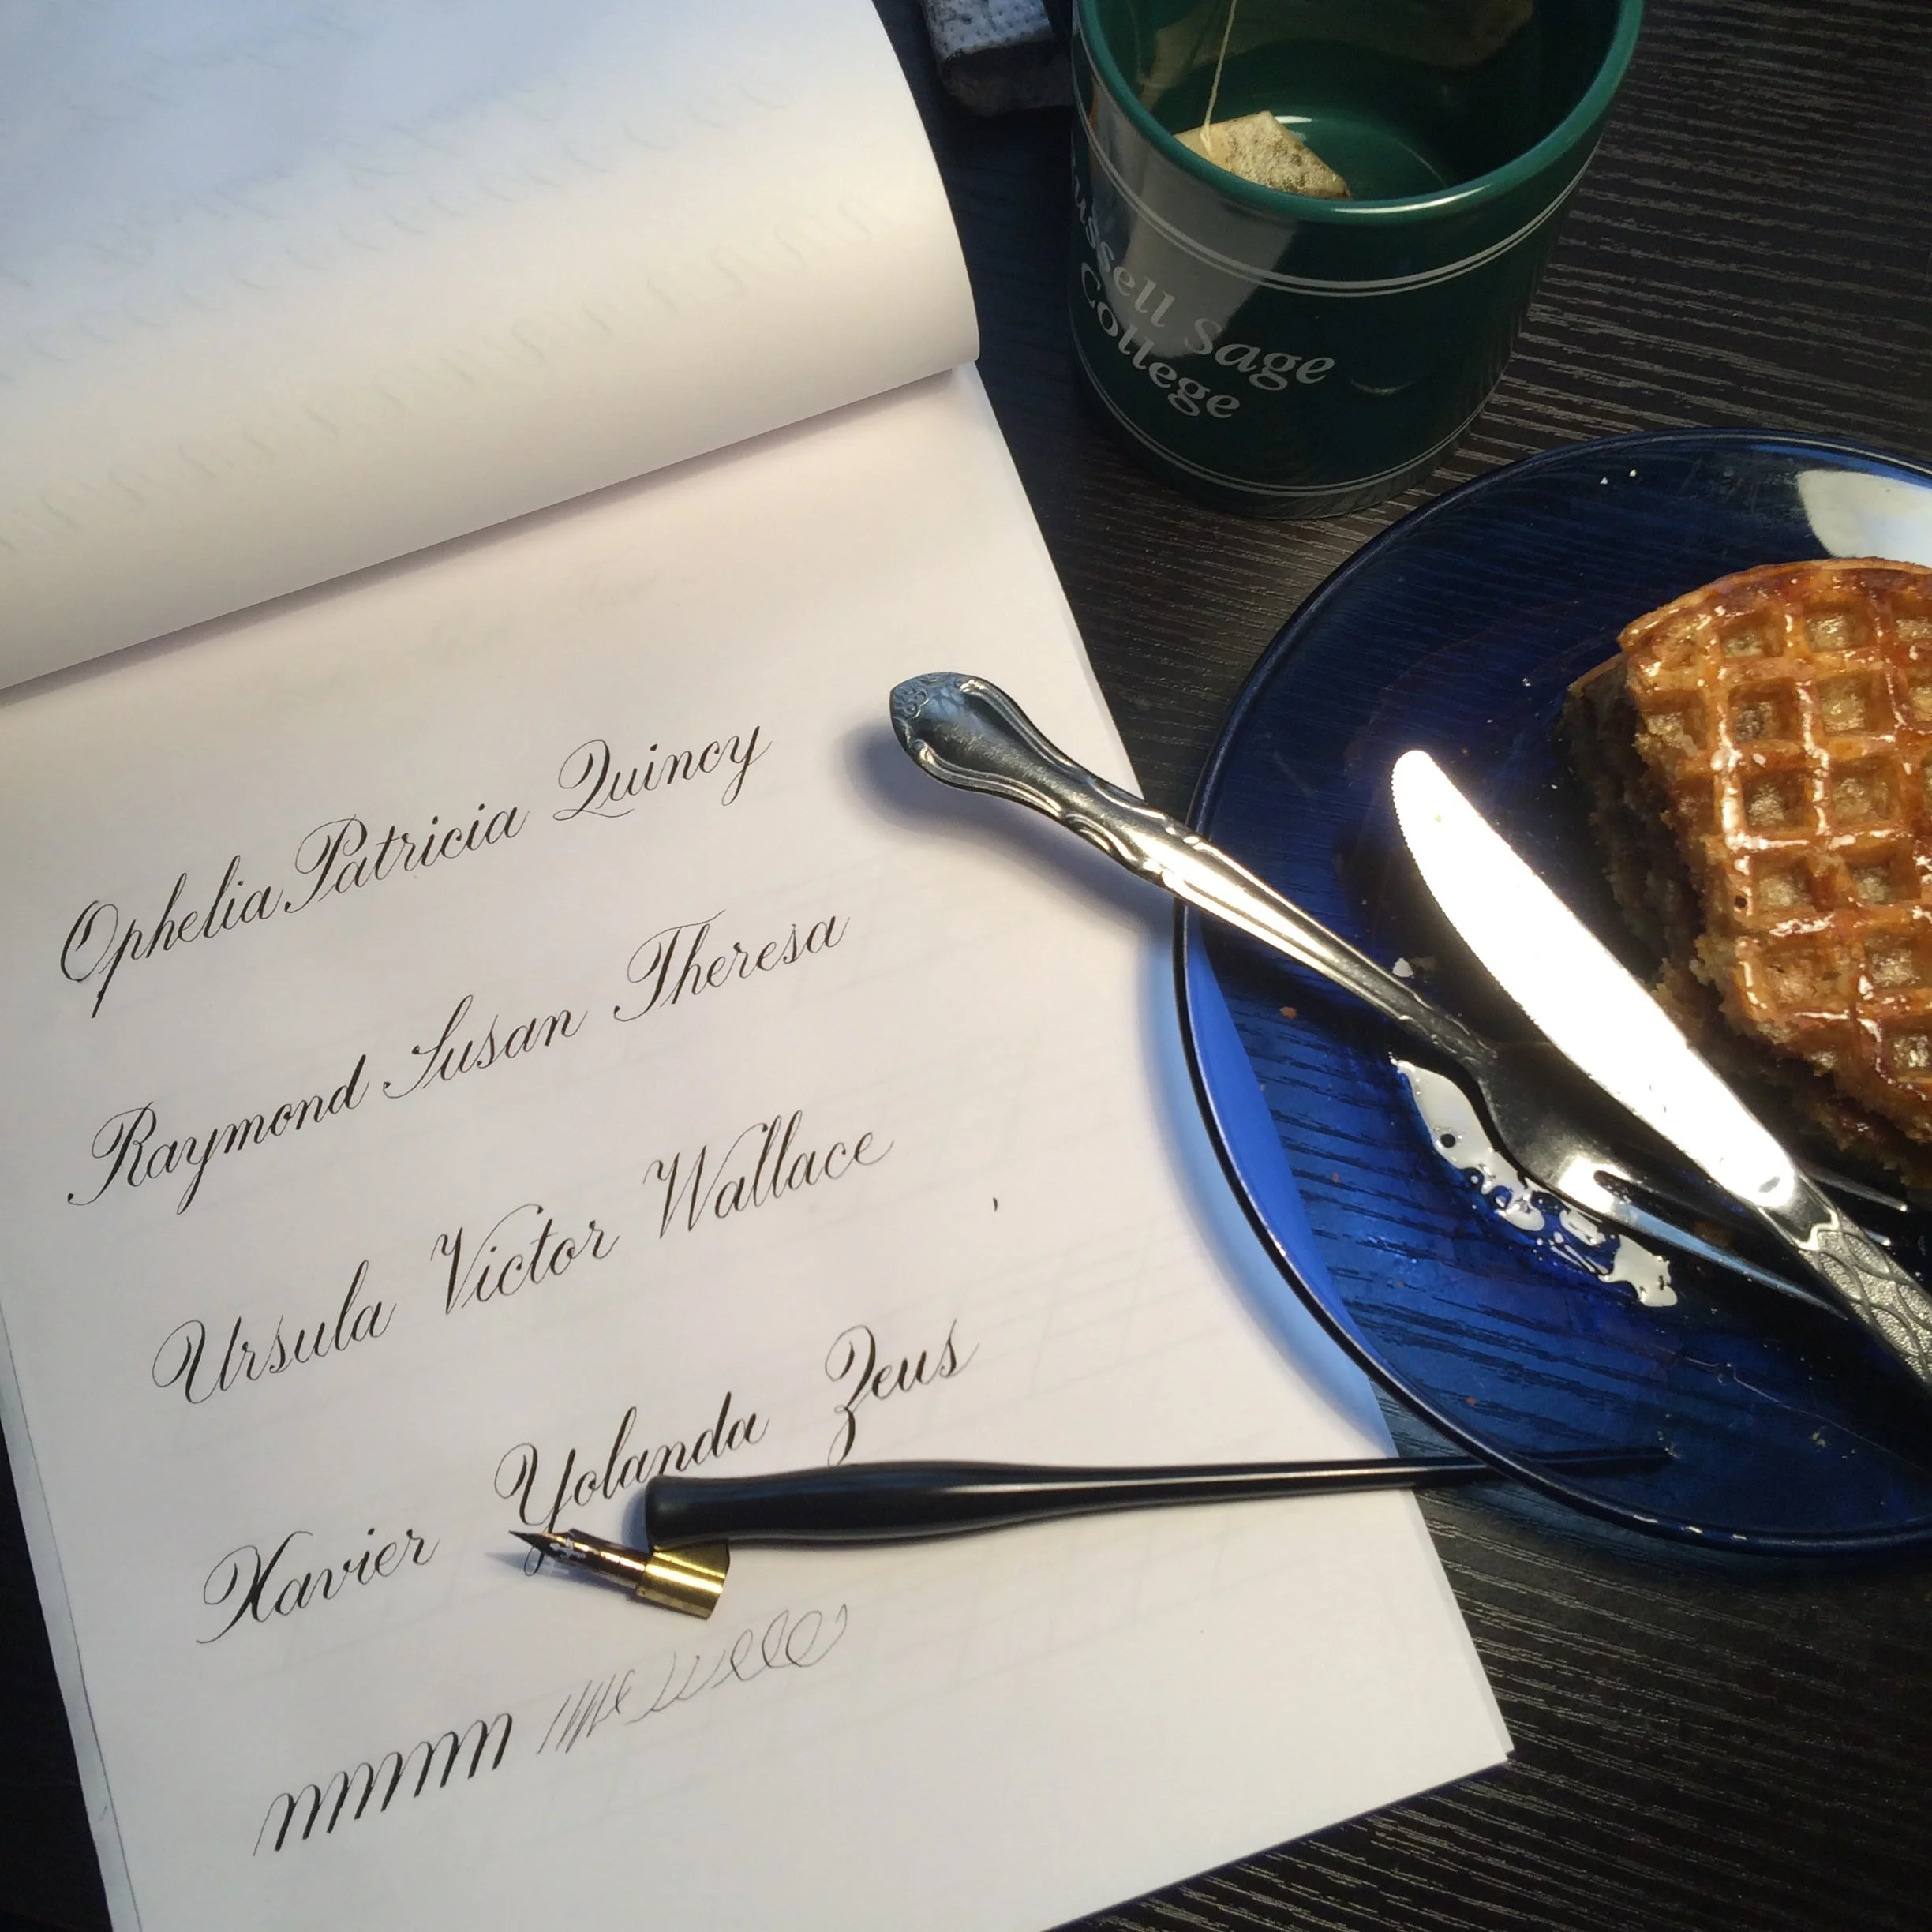 Russell Sage
College
Ophelia Patricia Quincy
Raymond Susan Theresa
Ursula Victor Wallace
Xavier Yolanda Zeus